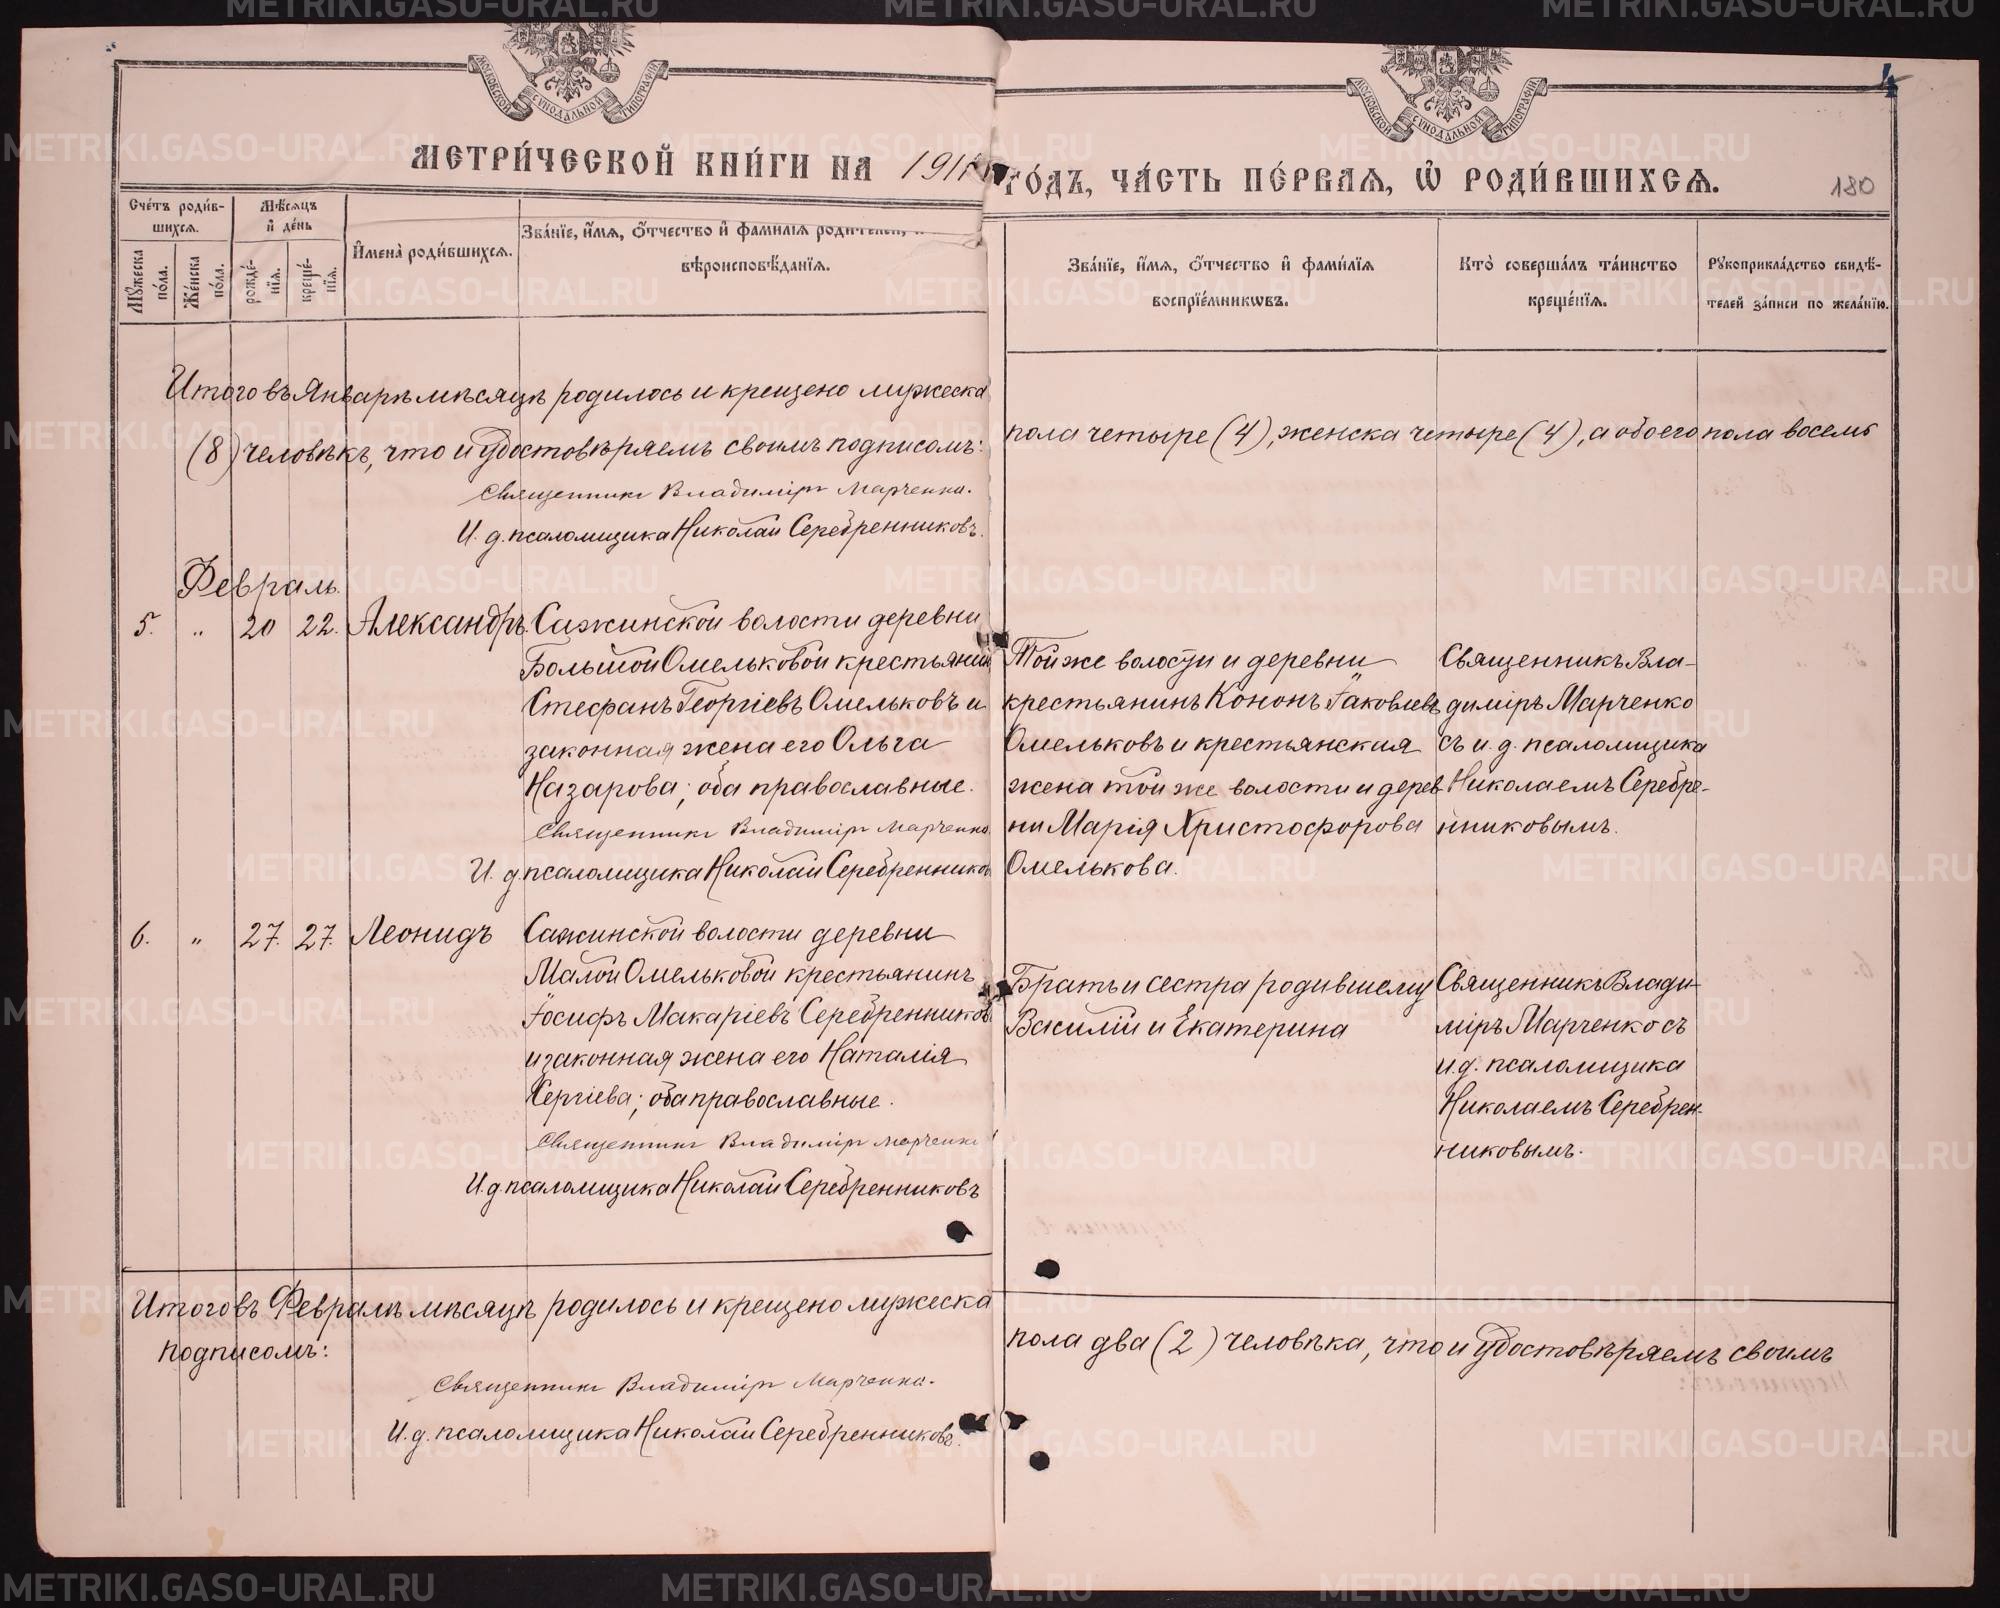 METRIKI.GASO-URAL.RU
МОСКОВСКОЙ СѴНОДАЛЬНОЙ ТИПОГРАФІИ
МОСКОВСКОЙ СѴНОДАЛЬНОЙ ТИПОГРАФІИ
4
МЕТРИ́ЧЕСКОЙ КНИ́ГИ НА
ГО́ДЪ, ЧА́СТЬ ПЕ́РВАѦ, Ѿ РОДИ́ВШИХСѦ.
180
Сче́тъ роди́в-
шихсѧ.
Мѣ́сѧцъ
и҆ де́нь
Мꙋ́жеска по́ла.
Же́нска по́ла.
рожде́-
нїѧ.
креще́-
нїѧ.
И҆мена̀ роди́вшихсѧ.
Зва́нїе, и҆́мѧ, ѻ҆́тчество и҆ фами́лїѧ родителей,
вѣроисповѣ́данїѧ.
Зва́нїе, и҆́мѧ, ѻ҆́тчество и҆ фами́лїѧ
воспрїе́мникѡвъ.
Кто̀ соверша́лъ та́инство
креще́нїѧ.
Рꙋкоприкла́дство свидѣ́-
телей за́писи по жела́нїю.
Итого въ Январѣ мѣсяцѣ родилось и крещено мужеска
пола четыре (4), женска четыре (4), а обоего пола восемь
(8) человѣкъ, что и удостовѣряемъ своимъ подписомъ:
Священникъ Владиміръ Марченко.
И. д. псаломщика Николай Серебренниковъ.
Февраль.
5. „ 20 22. Александръ.
Сажинской волости деревни
Большой Омельковой крестьянинъ
Стефанъ Георгіевъ Омельковъ и
законная жена его Ольга
Назарова; оба православные.
Священникъ Владиміръ Марченко.
И. д. псаломщика Николай Серебренниковъ
Той же волости и деревни
крестьянинъ Кононъ Іаковлевъ
Омельковъ и крестьянская
жена той же волости и дерев-
ни Марія Христофорова
Омелькова.
Священникъ Вла-
диміръ Марченко
съ и. д. псаломщика
Николаемъ Серебре-
нниковымъ.
6. „ 27. 27. Леонидъ
Сажинской волости деревни
Малой Омельковой крестьянинъ
Іосифъ Макаріевъ Серебренниковъ
и законная жена его Наталія
Сергіева; оба православные.
Священникъ Владиміръ Марченко
И. д. псаломщика Николай Серебренниковъ
Братъ и сестра родившему
Василій и Екатерина
Священникъ Влади-
міръ Марченко съ
и. д. псаломщика
Николаемъ Серебрен-
никовымъ.
Итого въ Февралѣ мѣсяцѣ родилось и крещено мужеска
пола два (2) человѣка, что и удостовѣряемъ своимъ
подписомъ:
Священникъ Владиміръ Марченко.
И. д. псаломщика Николай Серебренниковъ.